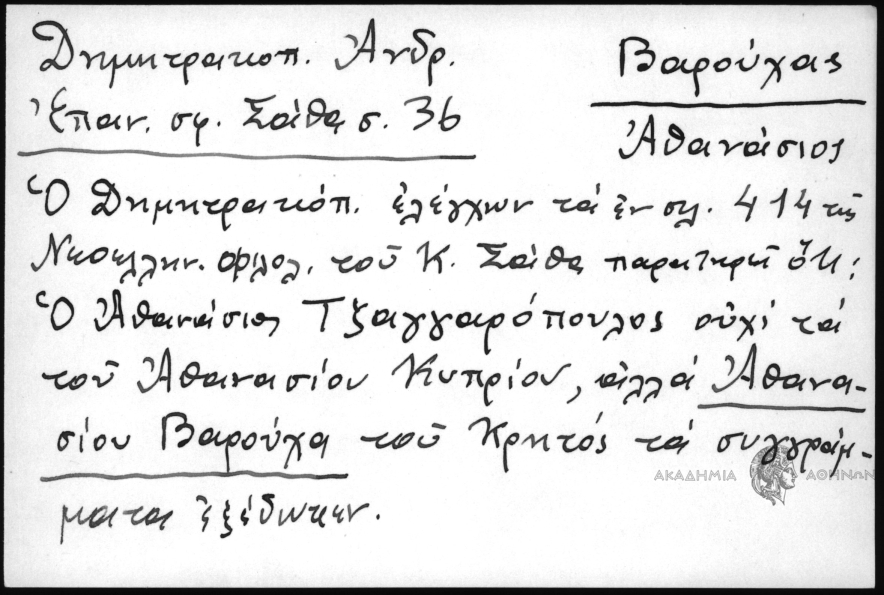 Δημητρακοπ. Ἀνδρ.
Ἐπαν. σφ. Σάθα σ. 36
Βαρούχας
Ἀθανάσιος
Ὁ Δημητρακόπ. ἐλέγχων τά ἐν σελ. 414 τῆς
Νεοελλην. Φιλολ. τοῦ Κ. Σάθα παρατηρεῖ ὅτι:
Ὁ Ἀθανάσιος Τζαγγαρόπουλος οὐχί τά
τοῦ Ἀθανασίου Κυπρίου, ἀλλά Ἀθανα-
σίου Βαρούχα τοῦ Κρητός τά συγγράμ-
ματα ἐξέδωκεν.
ΑΚΑΔΗΜΙΑ ΑΘΗΝΩΝ